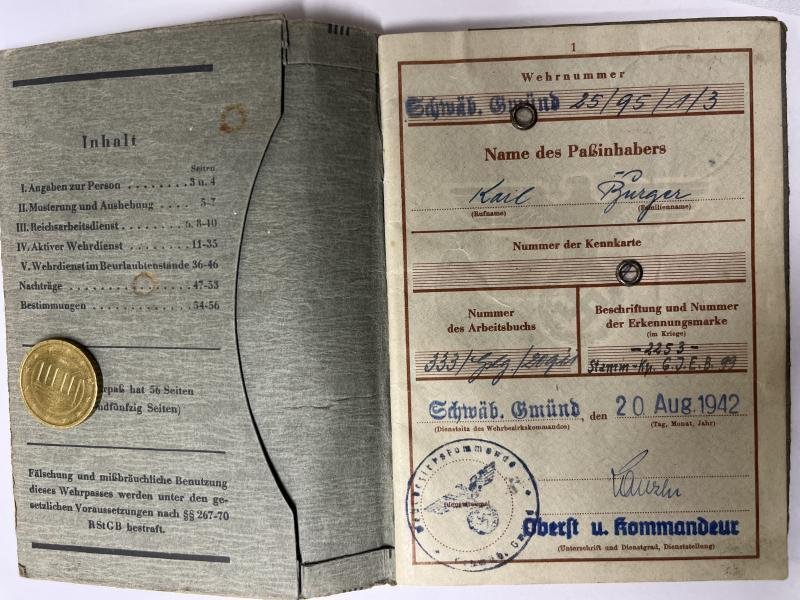 Inhalt
Seiten
I. Angaben zur Person ........ 3 u. 4
II. Musterung und Aushebung .... 5-7
III. Reichsarbeitsdienst ....... 8-10
IV. Aktiver Wehrdienst ........ 11-35
V. Wehrdienst im Beurlaubtenstande 36-46
Nachträge ............ 47-53
Bestimmungen .......... 54-56
paß hat 56 Seiten
ndfünfzig Seiten)
Fälschung und mißbräuchliche Benutzung
dieses Wehrpasses werden unter den ge-
setzlichen Voraussetzungen nach §§ 267-70
RStGB bestraft.
1
Wehrnummer
Schwäb. Gmünd 25/95/1/3
Name des Paßinhabers
Karl Burger
(Rufname) (Familienname)
Nummer der Kennkarte
Nummer
des Arbeitsbuchs
333/
Beschriftung und Nummer
der Erkennungsmarke
(im Kriege)
-2253-
Stamm-Kp. G.J.E.B. 99
Schwäb. Gmünd, den 20 Aug. 1942
(Dienstsitz des Wehrbezirkskommandos) (Tag, Monat, Jahr)
Dienststempel
Oberst u. Kommandeur
(Unterschrift und Dienstgrad, Dienststellung)